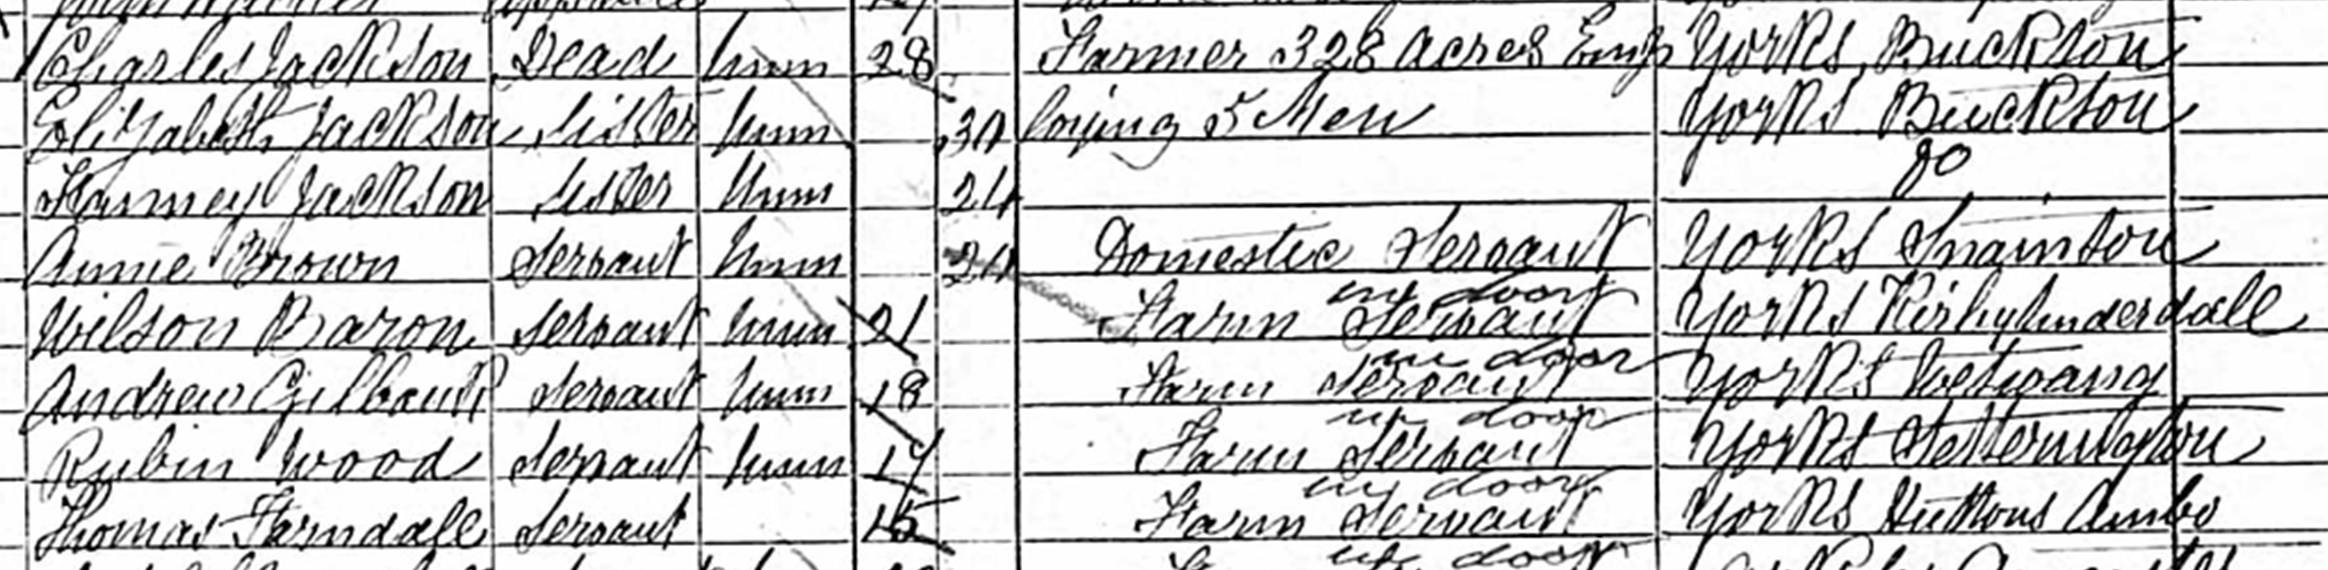 Charles Jackson Head Unm 28 Farmer 328 Acres Emp Yorks Buckton
Elizabeth Jackson Sister Unm 30 loying 5 Men Yorks Buckton
Fanney Jackson Sister Unm 24 Do
Annie Brown Servant Unm 24 Domestic Servant Yorks Snainton
in door
Wilson Baron Servant Unm 21 Farm Servant Yorks Kirbyunderdall
in door
Andrew Servant Unm 18 Farm Servant Yorks Wetwang
in door
Rubin Wood Servant Unm 17 Farm Servant Yorks Settrington
in door
Thomas Farndale Servant 15 Farm Servant Yorks Huttons Ambo
in door